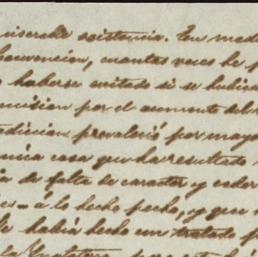 iserable existencia. En med
convencion, cuantas veces he p
haberse evitado si se hubie
mision por el aumento del
adicion prevaleció por mayo
única cosa que ha resultado
de falta de caracter y
á lo hecho pecho, y que
le había hecho un tratado p
la